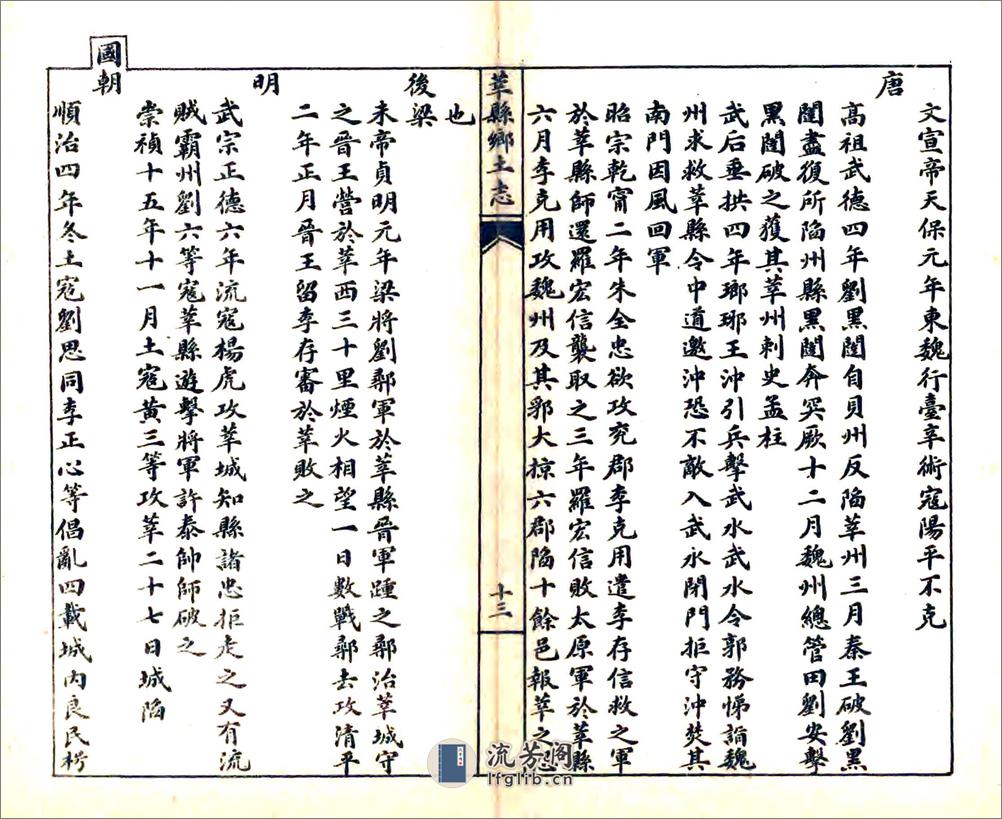 文宣帝天保元年東魏行臺辛術寇陽平不克
唐
高祖武德四年劉黑闥自貝州反陷莘州三月秦王破劉黑
闥盡復所陷州縣黑闥奔突厥十二月魏州總管田劉安擊
黑闥破之獲其莘州刺史孟柱
武后垂拱四年瑯琊王沖引兵擊武水武水令郭務悌詣魏
州求救莘縣令中道邀沖恐不敵入武水閉門拒守沖焚其
南門因風回軍
昭宗乾甯二年朱全忠欲攻兗鄆李克用遣李存信救之軍
於莘縣師還羅宏信襲取之三年羅宏信敗太原軍於莘縣
六月李克用攻魏州及其郛大掠六郡陷十餘邑報莘之
莘縣鄉土志
十三
也
後梁
末帝貞明元年梁將劉鄩軍於莘縣晉軍踵之鄩治莘城守
之晉王營於莘西三十里煙火相望一日數戰鄩去攻清平
二年正月晉王留李存審於莘敗之
明
武宗正德六年流寇楊虎攻莘城知縣諸忠拒走之又有流
賊霸州劉六等寇莘縣遊擊將軍許泰帥師破之
崇禎十五年十一月土寇黃三等攻莘二十七日城陷
國朝
順治四年冬土寇劉思同李正心等倡亂四載城內良民枵
流芳閣
lfglib.cn